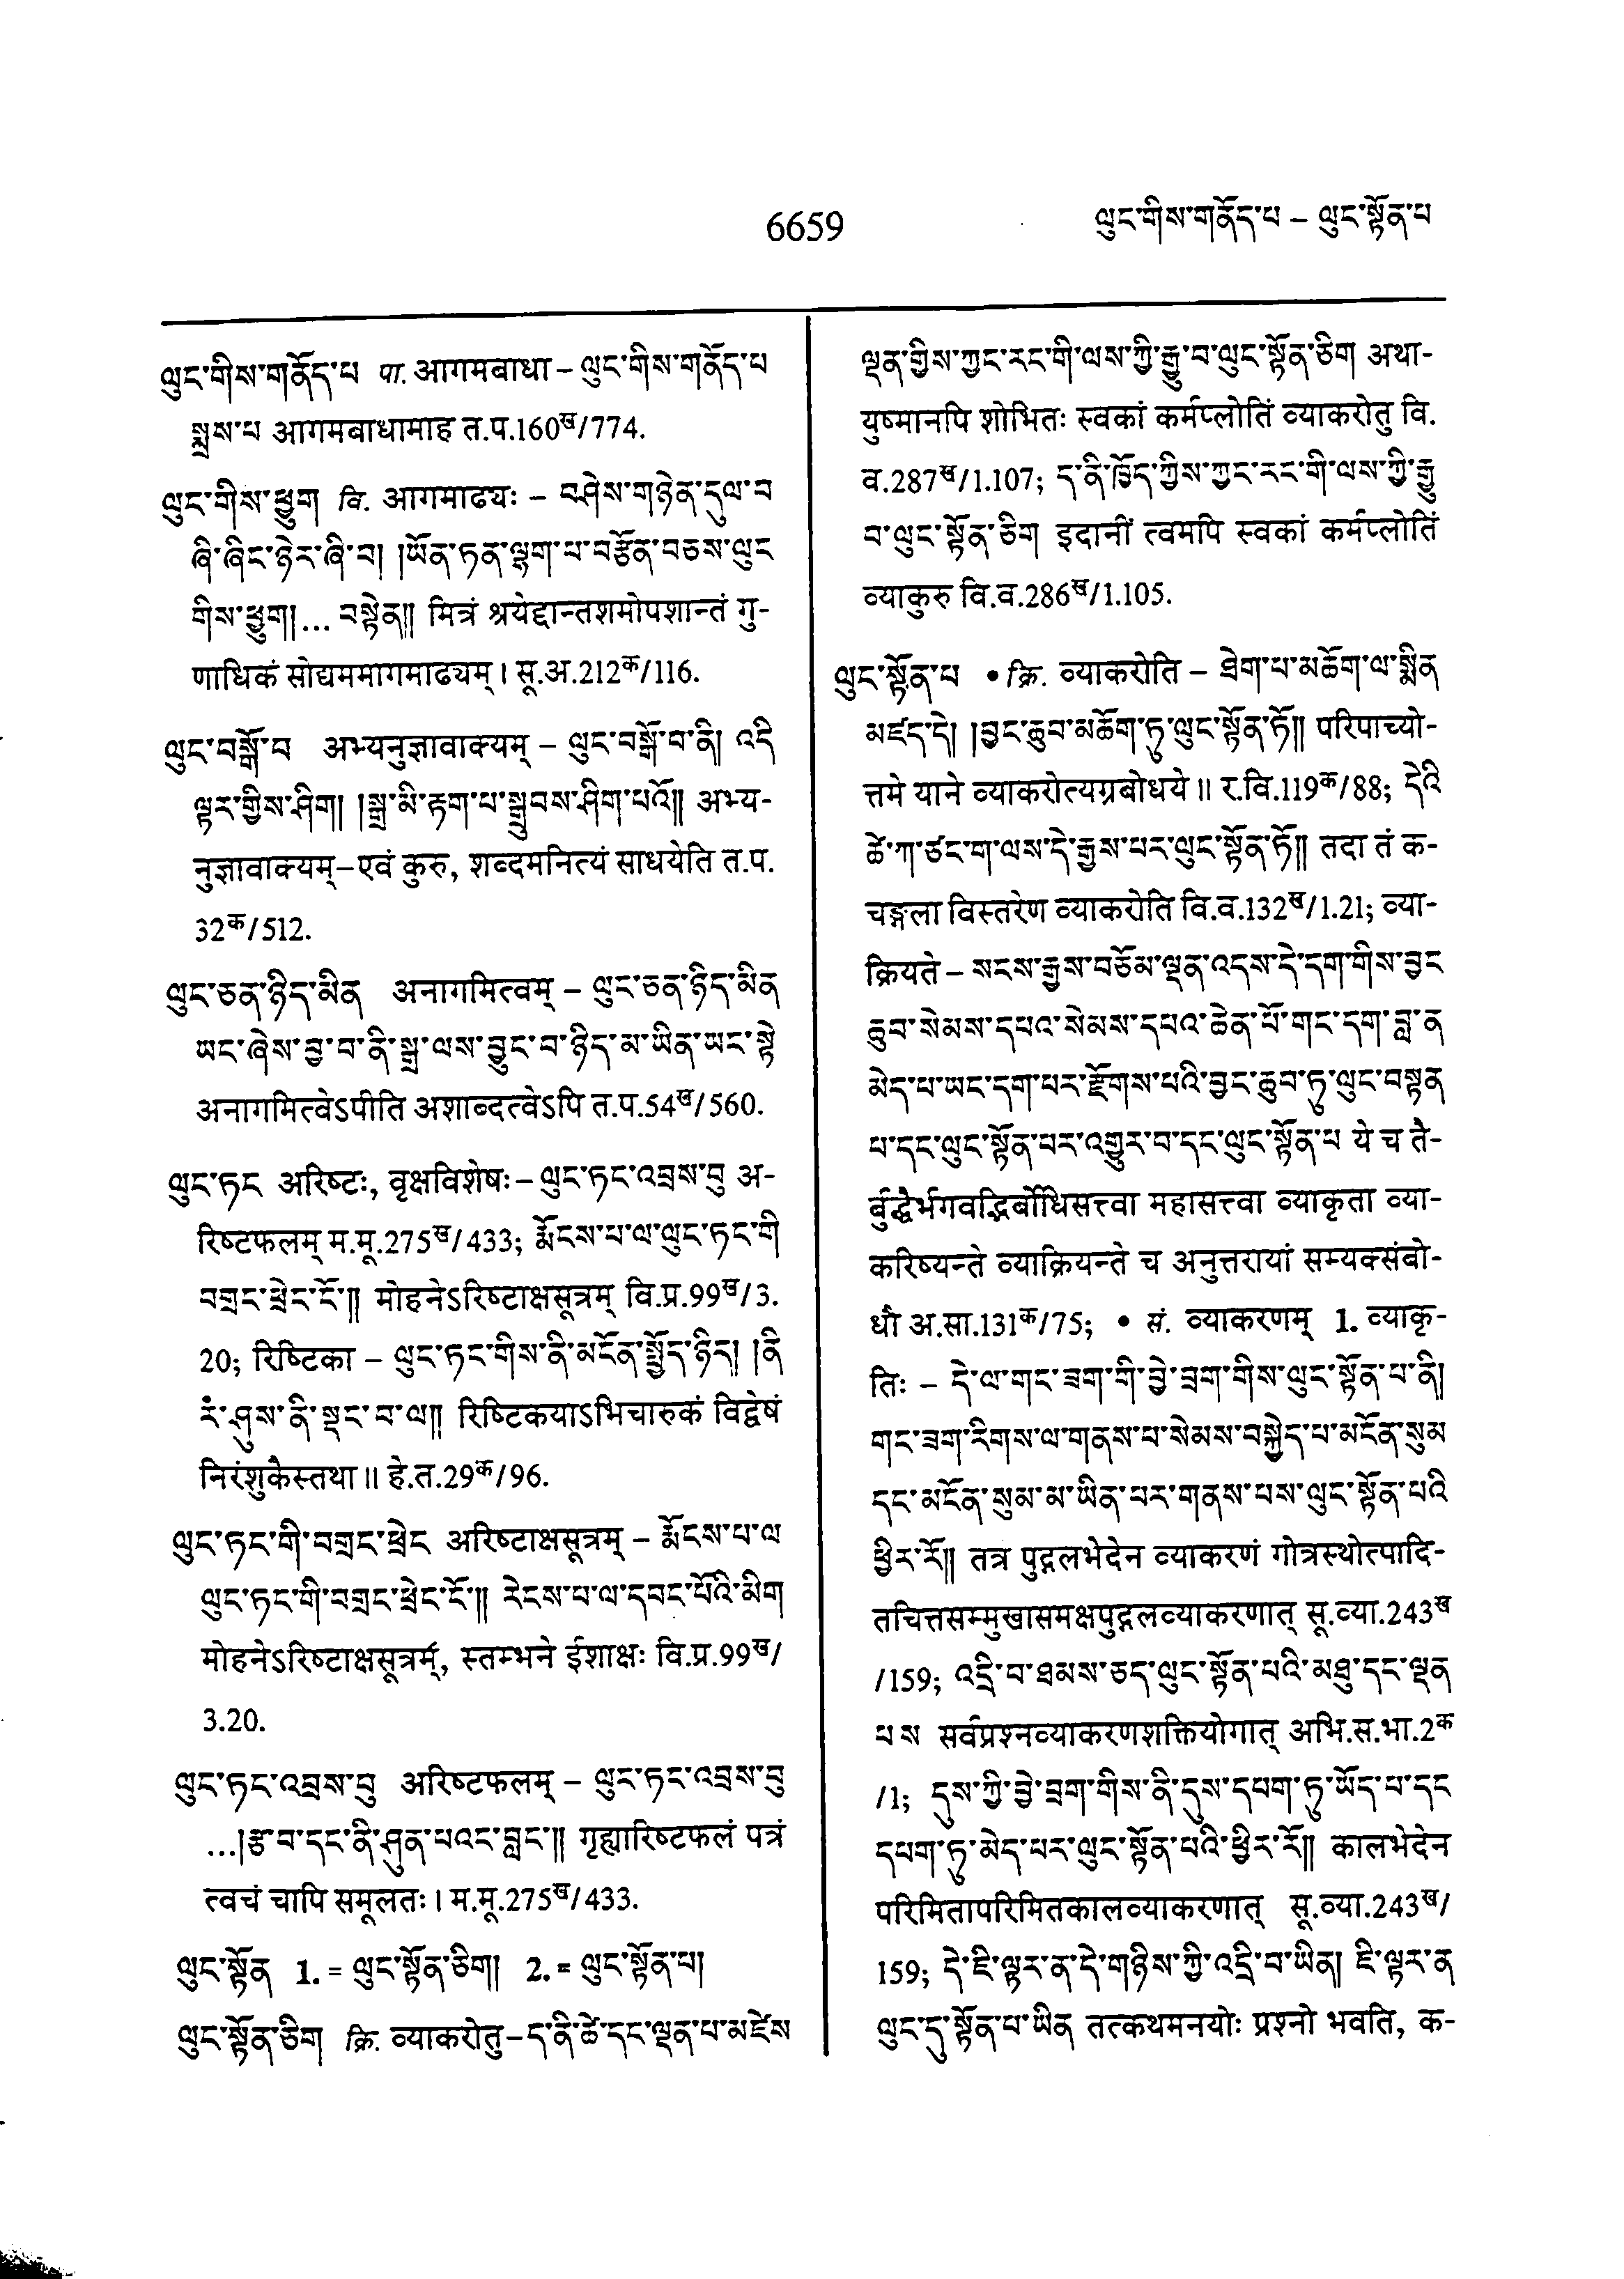 6659
ལུང་གིས་གནོད་པ – ལུང་སྟོན་པ
ལུང་གིས་གནོད་པ पा. आगमबाधा – ལུང་གིས་གནོད་པ
སྨྲས་པ आगमबाधामाह त.प.160ख/774.
ལུང་གིས་ཕྱུག वि. आगमाढ्यः – བཤེས་གཉེན་དུལ་བ
ཞི་ཞིང་ཉེར་ཞི་བ། །ཡོན་ཏན་ལྷག་པ་བརྩོན་བཅས་ལུང
གིས་ཕྱུག།... བསྟེན།། मित्रं श्रयेद्दान्तशमोपशान्तं गु-
णाधिकं सोद्यममागमाढ्यम्। सू.अ.212क/116.
ལུང་བསྒོ་བ अभ्यनुज्ञावाक्यम् – ལུང་བསྒོ་བ་ནི། འདི
ལྟར་གྱིས་ཤིག། །སྒྲ་མི་རྟག་པ་སྒྲུབས་ཤིག་པའོ།། अभ्य-
नुज्ञावाक्यम्–एवं कुरु, शब्दमनित्यं साधयेति त.प.
32क/512.
ལུང་ཅན་ཉིད་མིན अनागमित्वम् – ལུང་ཅན་ཉིད་མིན
ཡང་ཞེས་བྱ་བ་ནི་སྒྲ་ལས་བྱུང་བ་ཉིད་མ་ཡིན་ཡང་སྟེ
अनागमित्वेऽपीति अशाब्दत्वेऽपि त.प.54ख/560.
ལུང་ཏང अरिष्टः, वृक्षविशेषः – ལུང་ཏང་འབྲས་བུ अ-
रिष्टफलम् म.मू.275ख/433; རྨོངས་པ་ལ་ལུང་ཏང་གི
བགྲང་ཕྲེང་ངོ་།། मोहनेऽरिष्टाक्षसूत्रम् वि.प्र.99ख/3.
20; रिष्टिका – ལུང་ཏང་གིས་ནི་མངོན་སྤྱོད་ཉིད། །ནི
རཾ་ཤུས་ནི་སྡང་བ་ལ།། रिष्टिकयाऽभिचारुकं विद्वेषं
निरंशुकैस्तथा॥ हे.त.29क/96.
ལུང་ཏང་གི་བགྲང་ཕྲེང अरिष्टाक्षसूत्रम् – རྨོངས་པ་ལ
ལུང་ཏང་གི་བགྲང་ཕྲེང་ངོ་།། རེངས་པ་ལ་དབང་པོའི་མིག
मोहनेऽरिष्टाक्षसूत्रम्, स्तम्भने ईशाक्षः वि.प्र.99ख/
3.20.
ལུང་ཏང་འབྲས་བུ अरिष्टफलम् – ལུང་ཏང་འབྲས་བུ
...།རྩ་བ་དང་ནི་ཤུན་པའང་བླང་།། गृह्यारिष्टफलं पत्रं
त्वचं चापि समूलतः। म.मू.275ख/433.
ལུང་སྟོན 1. = ལུང་སྟོན་ཅིག། 2. = ལུང་སྟོན་པ།
ལུང་སྟོན་ཅིག क्रि. व्याकरोतु – ད་ནི་ཚེ་དང་ལྡན་པ་མཛེས
ལྡན་གྱིས་ཀྱང་རང་གི་ལས་ཀྱི་རྒྱུ་བ་ལུང་སྟོན་ཅིག अथा-
युष्मानपि शोभितः स्वकां कर्मप्लोतिं व्याकरोतु वि.
व.287ख/1.107; ད་ནི་ཁྱོད་ཀྱིས་ཀྱང་རང་གི་ལས་ཀྱི་རྒྱུ
བ་ལུང་སྟོན་ཅིག इदानीं त्वमपि स्वकां कर्मप्लोतिं
व्याकुरु वि.व.286ख/1.105.
ལུང་སྟོན་པ • क्रि. व्याकरोति – ཐེག་པ་མཆོག་ལ་སྨིན
མཛད་དེ། །བྱང་ཆུབ་མཆོག་ཏུ་ལུང་སྟོན་ཏོ།། परिपाच्यो-
त्तमे याने व्याकरोत्यग्रबोधये॥ र.वि.119क/88; དེའི
ཚེ་ཀ་ཙང་ག་ལས་དེ་རྒྱས་པར་ལུང་སྟོན་ཏོ།། तदा तं क-
चङ्गला विस्तरेण व्याकरोति वि.व.132ख/1.21; व्या-
क्रियते – སངས་རྒྱས་བཅོམ་ལྡན་འདས་དེ་དག་གིས་བྱང
ཆུབ་སེམས་དཔའ་སེམས་དཔའ་ཆེན་པོ་གང་དག་བླ་ན
མེད་པ་ཡང་དག་པར་རྫོགས་པའི་བྱང་ཆུབ་ཏུ་ལུང་བསྟན
པ་དང་ལུང་སྟོན་པར་འགྱུར་བ་དང་ལུང་སྟོན་པ ये च तै-
र्बुद्धैर्भगवद्भिर्बोधिसत्त्वा महासत्त्वा व्याकृता व्या-
करिष्यन्ते व्याक्रियन्ते च अनुत्तरायां सम्यक्संबो-
धौ अ.सा.131क/75; • सं. व्याकरणम् 1. व्याकृ-
तिः – དེ་ལ་གང་ཟག་གི་བྱེ་བྲག་གིས་ལུང་སྟོན་པ་ནི།
གང་ཟག་རིགས་ལ་གནས་པ་སེམས་བསྐྱེད་པ་མངོན་སུམ
དང་མངོན་སུམ་མ་ཡིན་པར་གནས་པས་ལུང་སྟོན་པའི
ཕྱིར་རོ།། तत्र पुद्गलभेदेन व्याकरणं गोत्रस्थोत्पादि-
तचित्तसम्मुखासमक्षपुद्गलव्याकरणात् सू.व्या.243ख
/159; འདྲི་བ་ཐམས་ཅད་ལུང་སྟོན་པའི་མཐུ་དང་ལྡན
པས सर्वप्रश्नव्याकरणशक्तियोगात् अभि.स.भा.2क
/1; དུས་ཀྱི་བྱེ་བྲག་གིས་ནི་དུས་དཔག་ཏུ་ཡོད་པ་དང
དཔག་ཏུ་མེད་པར་ལུང་སྟོན་པའི་ཕྱིར་རོ།། कालभेदेन
परिमितापरिमितकालव्याकरणात् सू.व्या.243ख/
159; དེ་ཇི་ལྟར་ན་དེ་གཉིས་ཀྱི་འདྲི་བ་ཡིན། ཇི་ལྟར་ན
ལུང་དུ་སྟོན་པ་ཡིན तत्कथमनयोः प्रश्नो भवति, क-